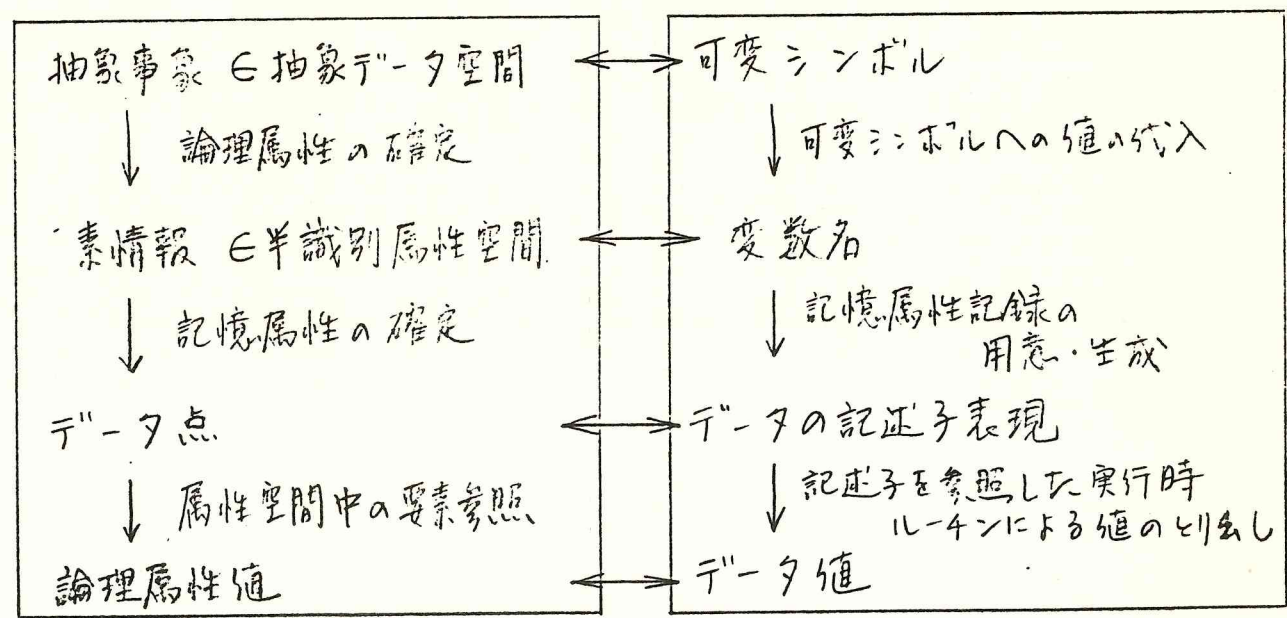 抽象事象 ∈ 抽象データ空間
論理属性の確定
素情報 ∈ 半識別属性空間
記憶属性の確定
データ点
属性空間中の要素参照
論理属性値
可変シンボル
可変シンボルへの値の代入
変数名
記憶属性記録の
用意・生成
データの記述子表現
記述子を参照した実行時
ルーチンによる値のとり出し
データ値